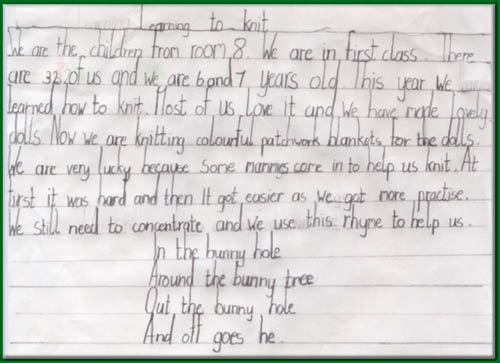 Learning to knit
We are the children from room 8. We are in first class. There
are 32 of us and we are 6 and 7 years old. This year we
learned how to knit. Most of us love it and we have made lovely
dolls. Now we are knitting colourful patchwork blankets for the dolls.
We are very lucky because some mammies come in to help us knit. At
first it was hard and then it got easier as we got more practise.
We still need to concentrate and we use this rhyme to help us.
In the bunny hole
Around the bunny tree
Out the bunny hole
And off goes he.